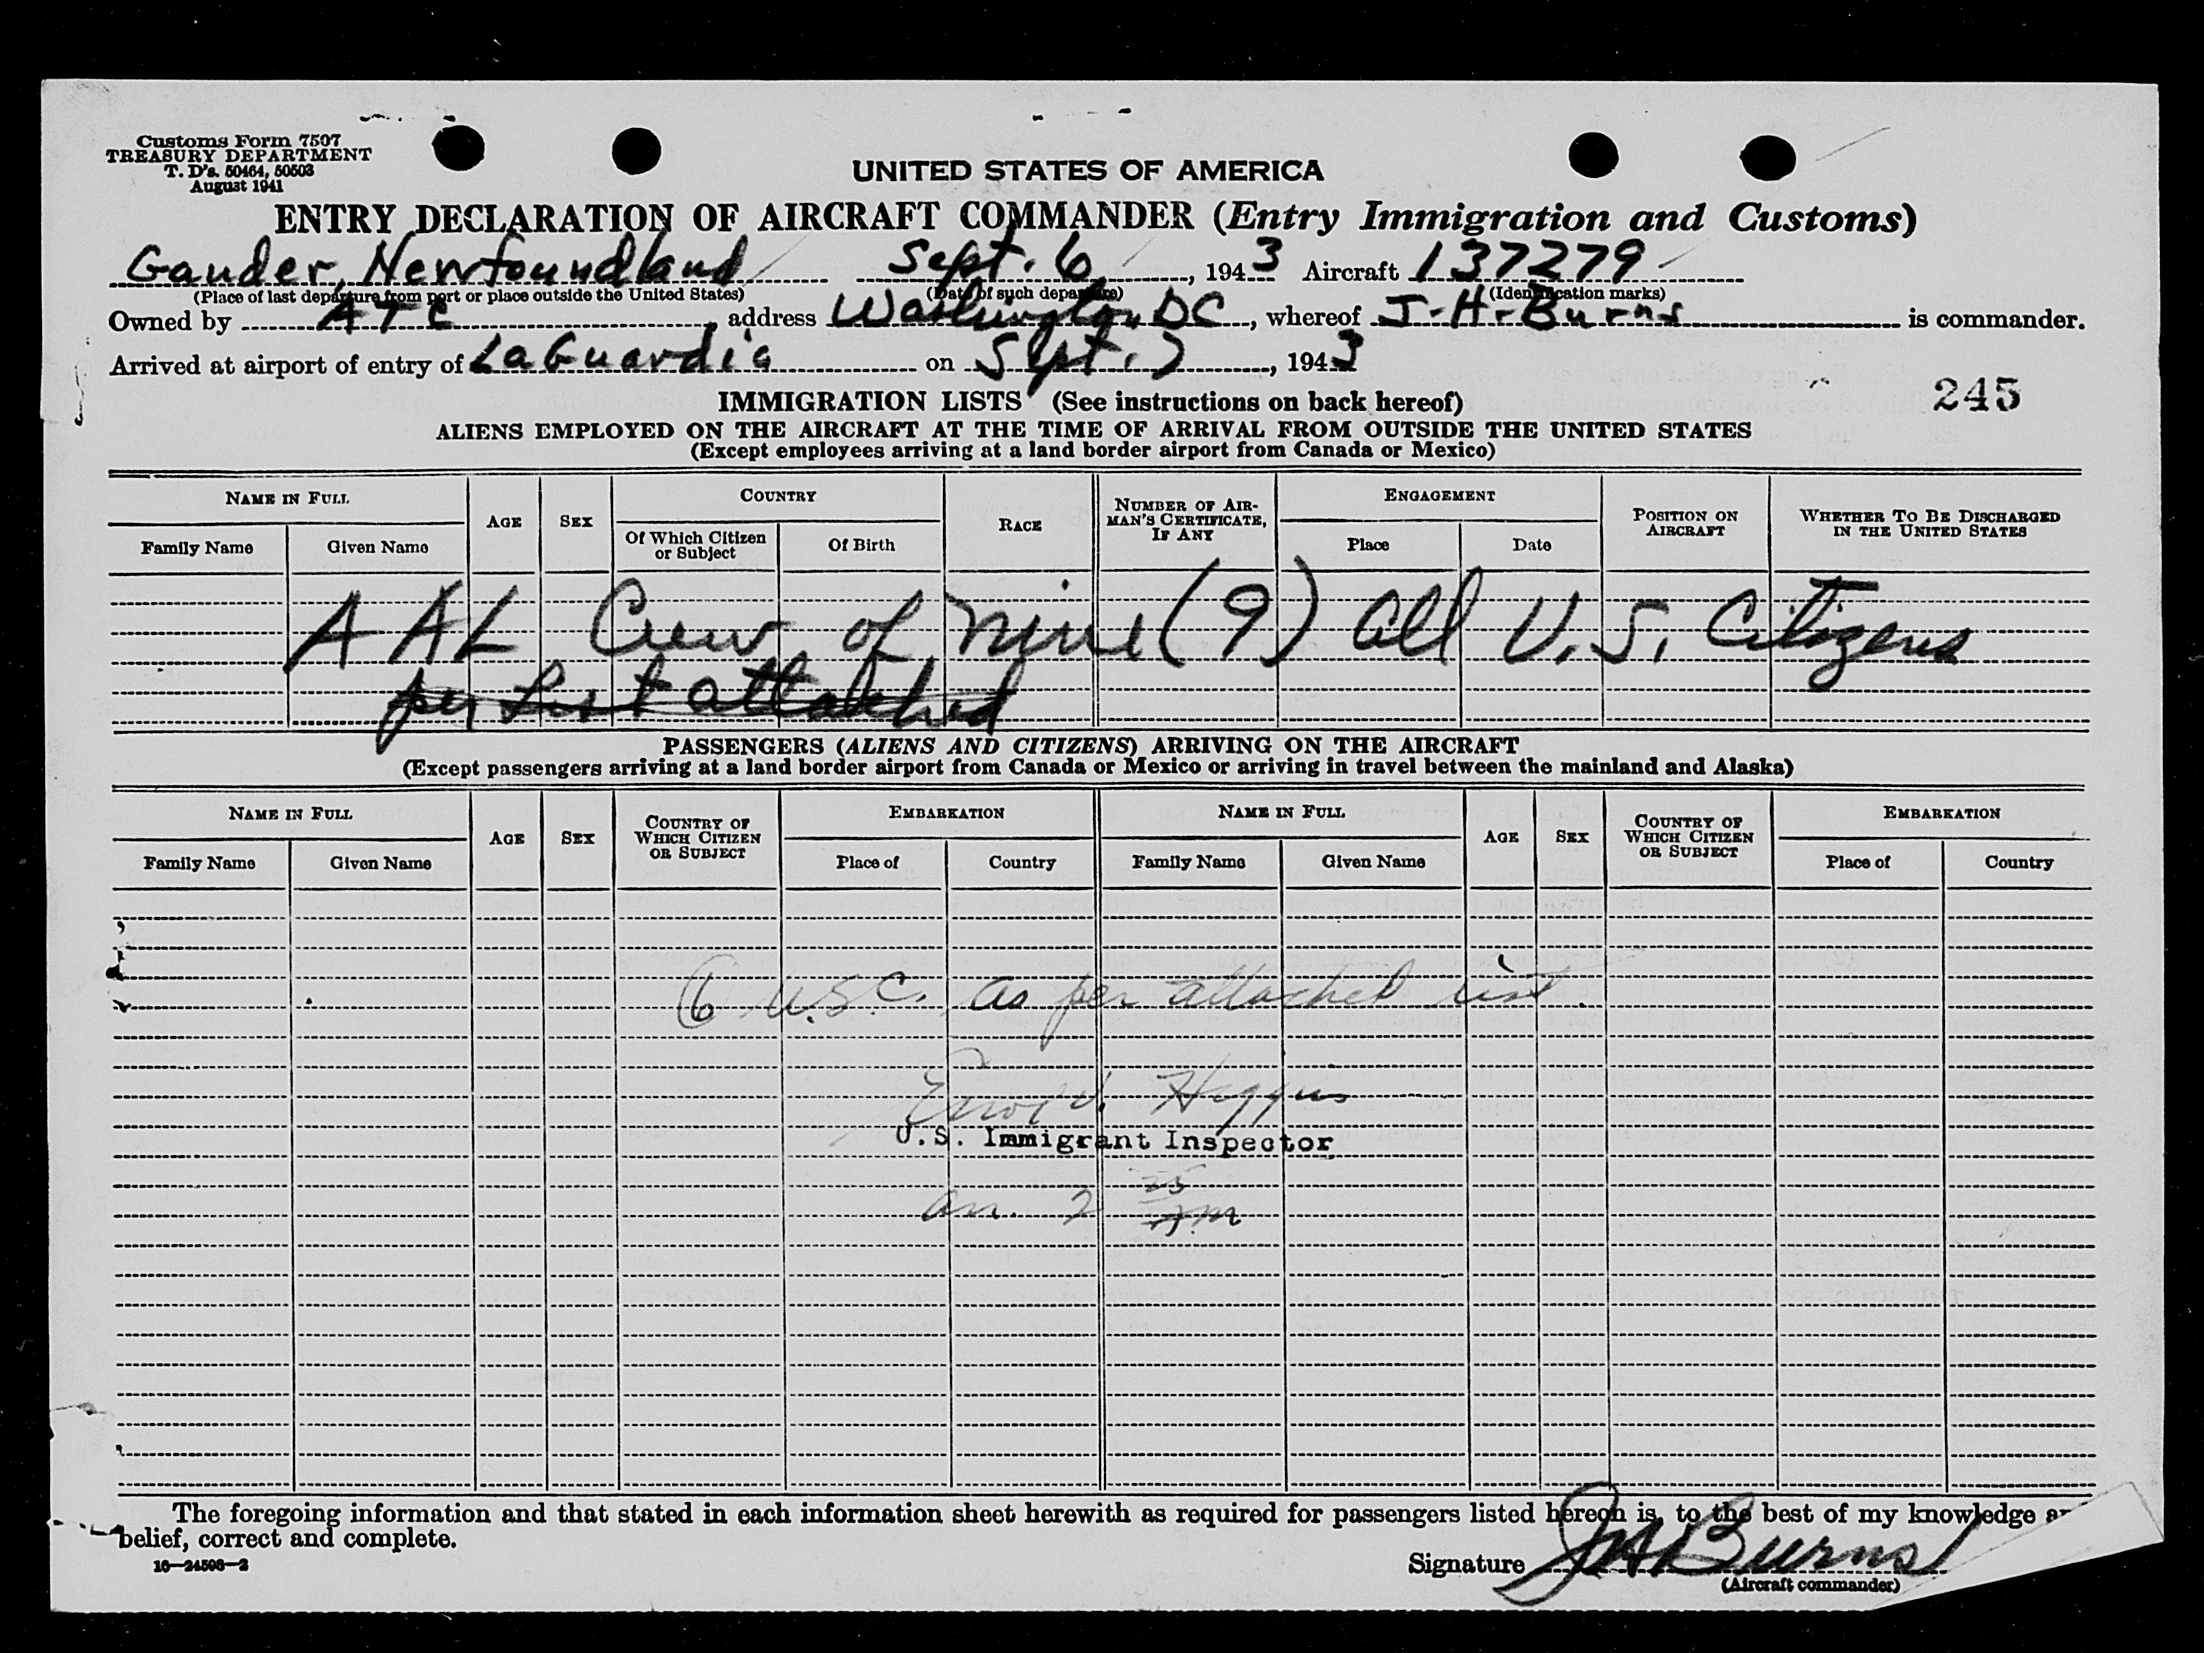 Customs Form 7507
TREASURY DEPARTMENT
T. D's. 50464, 50503
August 1941
UNITED STATES OF AMERICA
ENTRY DECLARATION OF AIRCRAFT COMMANDER (Entry Immigration and Customs)
Gander, Newfoundland Sept. 6, 1943 Aircraft 137279
(Place of last departure from port or place outside the United States) (Date of such departure) (Identification marks)
Owned by ATC, address Washington, DC, whereof J. H. Burns is commander.
Arrived at airport of entry of LaGuardia on Sept. 7, 1943
245
IMMIGRATION LISTS (See instructions on back hereof)
ALIENS EMPLOYED ON THE AIRCRAFT AT THE TIME OF ARRIVAL FROM OUTSIDE THE UNITED STATES
(Except employees arriving at a land border airport from Canada or Mexico)
NAME IN FULL AGE SEX COUNTRY RACE NUMBER OF AIRMAN'S CERTIFICATE, IF ANY ENGAGEMENT POSITION ON AIRCRAFT WHETHER TO BE DISCHARGED IN THE UNITED STATES
Family Name Given Name Of Which Citizen or Subject Of Birth Place Date
AAL Crew of nine (9) all U.S. Citizens
per List attatched
PASSENGERS (ALIENS AND CITIZENS) ARRIVING ON THE AIRCRAFT
(Except passengers arriving at a land border airport from Canada or Mexico or arriving in travel between the mainland and Alaska)
NAME IN FULL AGE SEX COUNTRY OF WHICH CITIZEN OR SUBJECT EMBARKATION NAME IN FULL AGE SEX COUNTRY OF WHICH CITIZEN OR SUBJECT EMBARKATION
Family Name Given Name Place of Country Family Name Given Name Place of Country
6 U.S.C. as per attached list.
Higgins
U.S. Immigrant Inspector
arr. 2 25
The foregoing information and that stated in each information sheet herewith as required for passengers listed hereon is, to the best of my knowledge
belief, correct and complete.
16—24598-2
Signature J H Burns
(Aircraft commander)